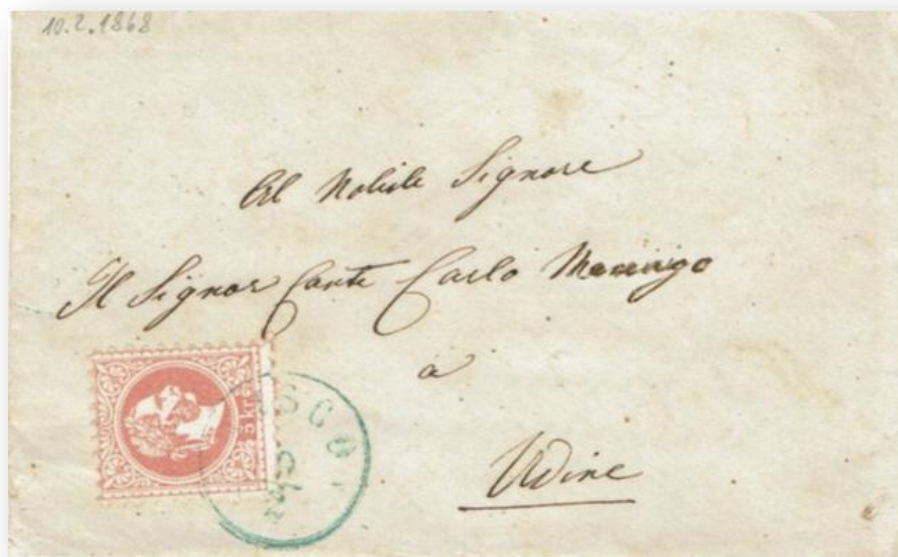 10.2.1868
Al Nobile Signore
Il Signor Conte Carlo
a
Udine
5 kr